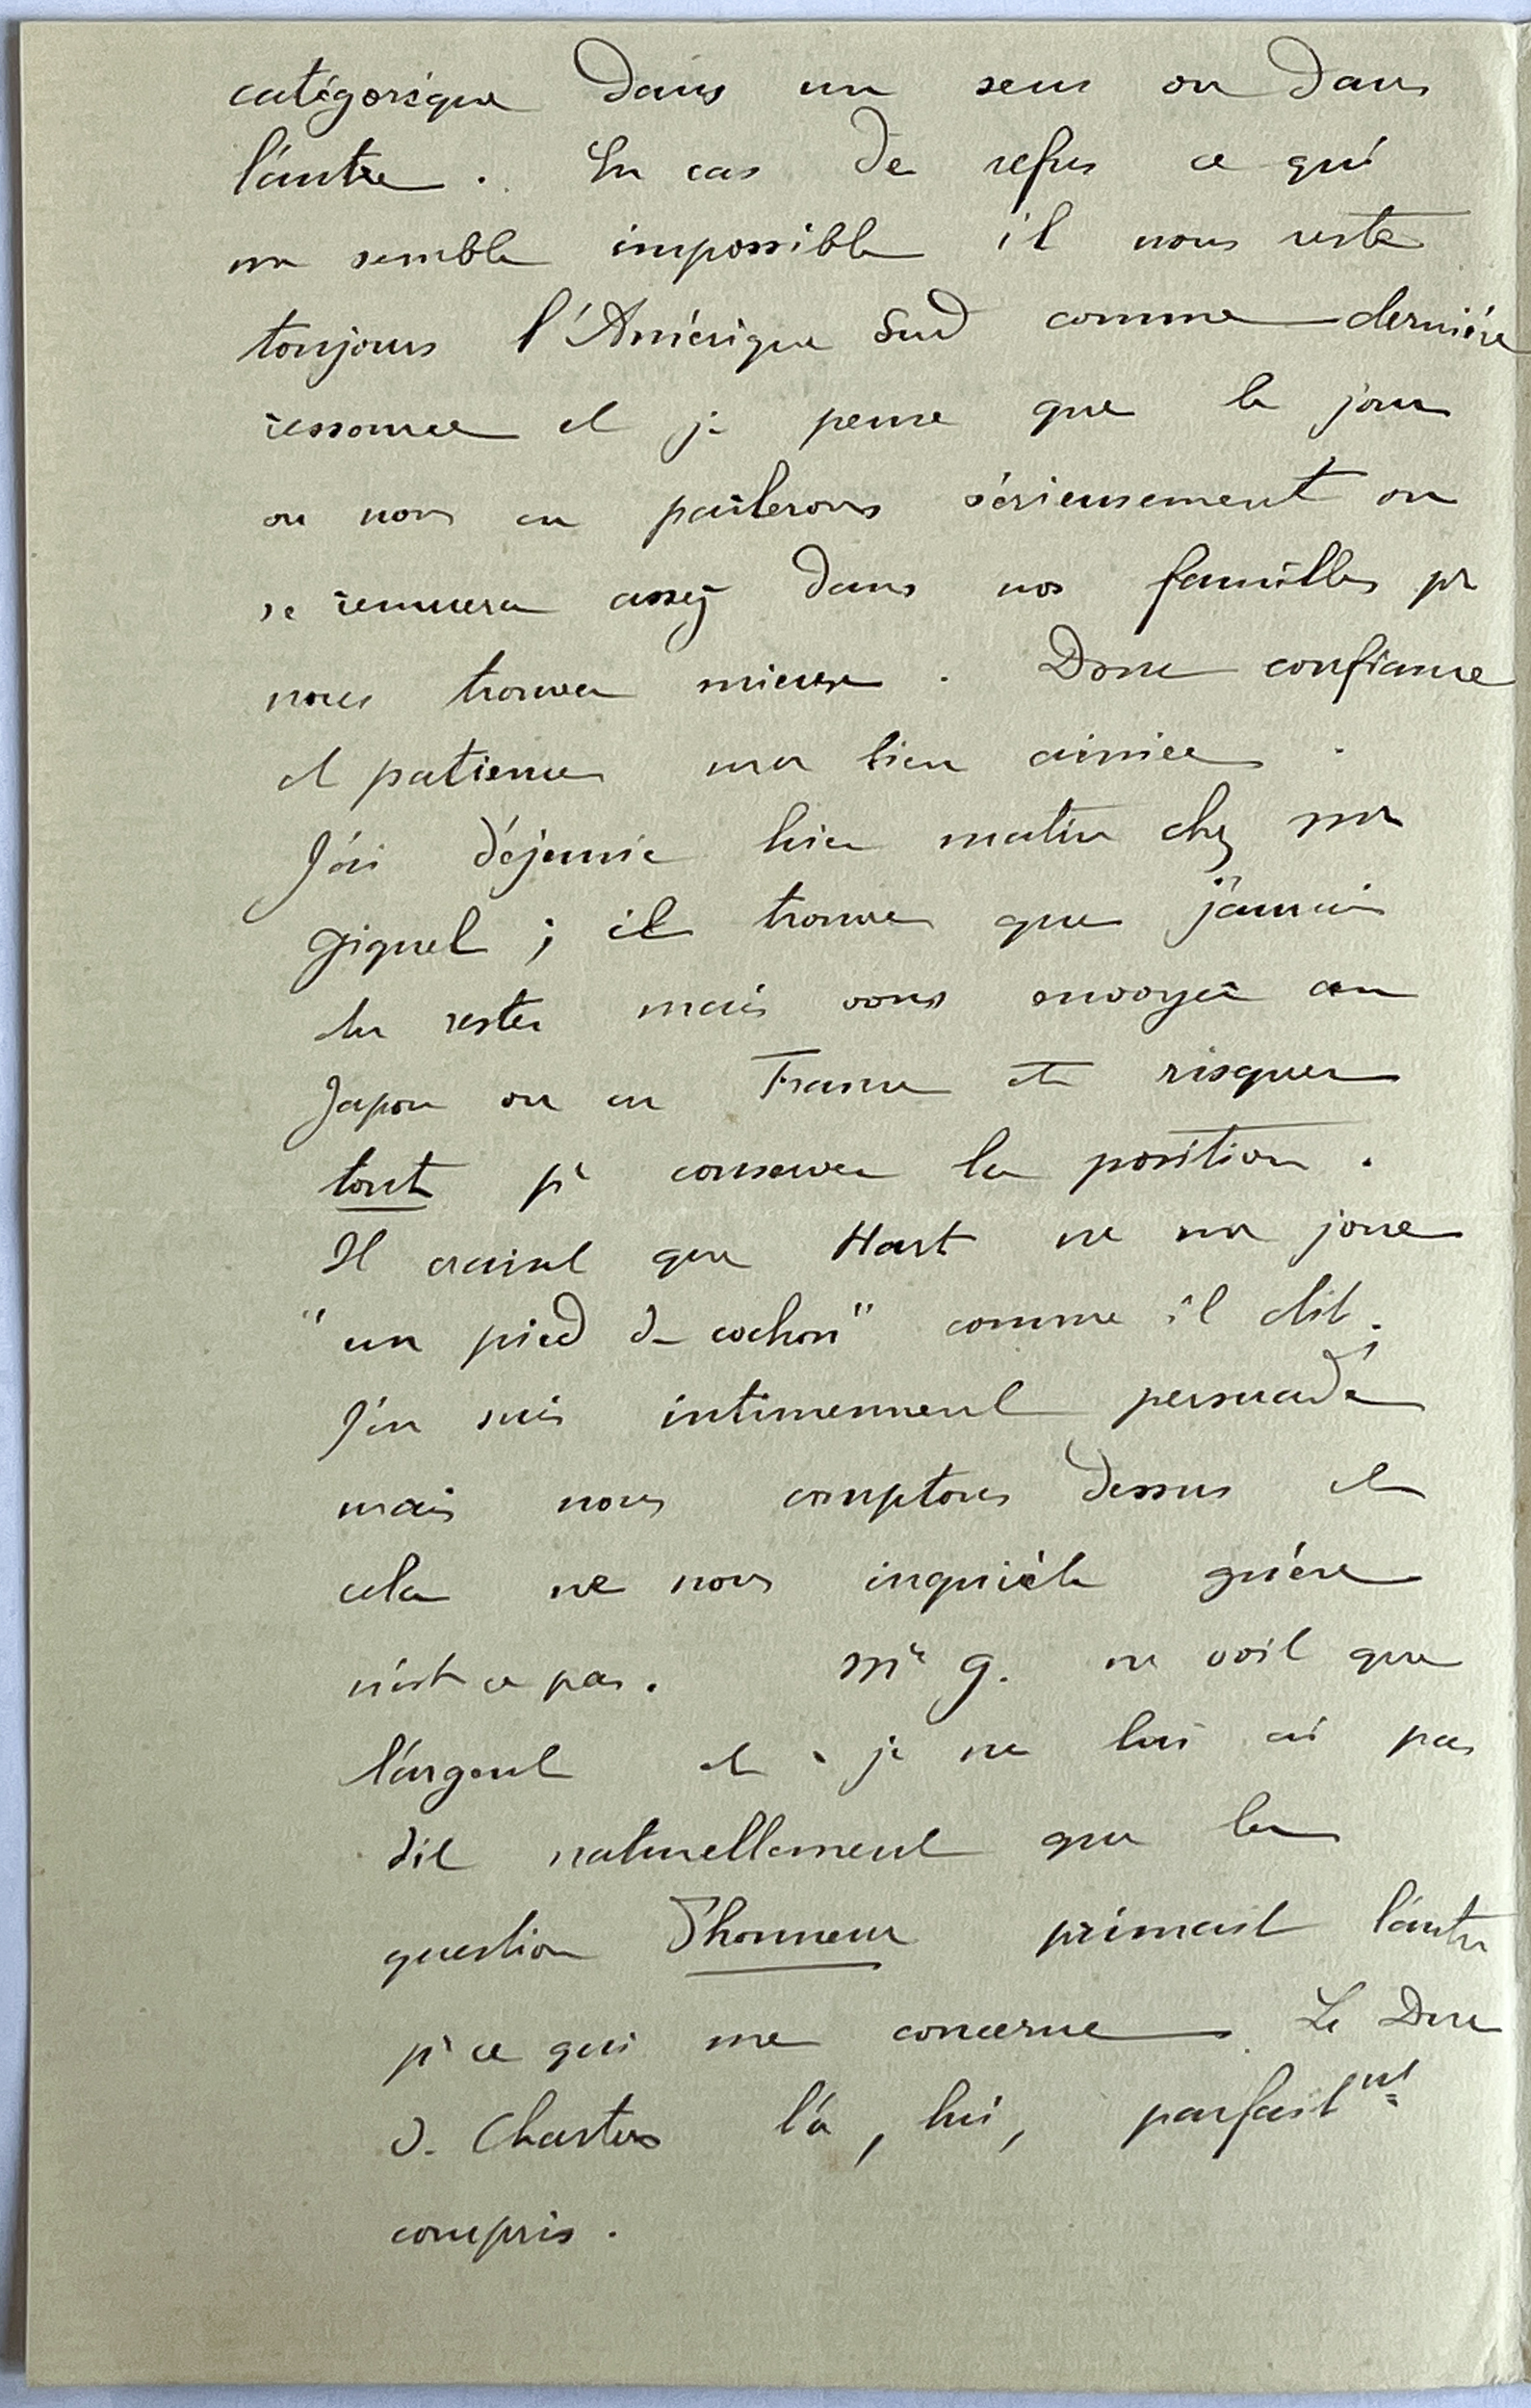 catégorique dans un sens ou dans
l'autre. En cas de refus ce qui
me semble impossible il nous reste
toujours l'Amérique Sud comme dernière
ressource et je pense que le jour
où nous en parlerons sérieusement on
se remuera assez dans nos familles pr
nous trouver mieux. Donc confiance
et patience ma bien aimée.
J'ai déjeuné hier matin chez Mr
Giquel ; il trouve que j'aurais
du rester mais vous envoyer au
Japon ou en France et risquer
tout pr conserver la position.
Il craint que Hart ne me joue
"un pied de cochon" comme il dit.
J'en suis intimement persuadé
mais nous comptons dessus et
cela ne nous inquiète guère
n'est ce pas. Mr G. ne voit que
l'argent et je ne lui ai pas
dit naturellement que la
question d'honneur primait l'autre
pr ce qui me concerne. Le Duc
de Chartres l'a, lui, parfaitmt
compris.